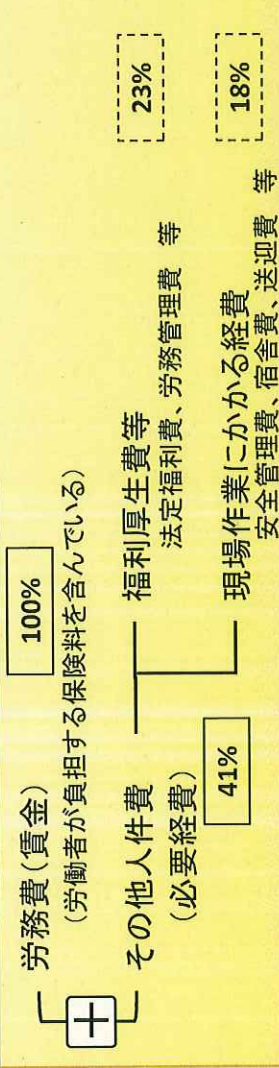 労務費(賃金) 100%
(労働者が負担する保険料を含んでいる)
＋
その他人件費
(必要経費) 41%
福利厚生費等 23%
法定福利費、労務管理費 等
現場作業にかかる経費 18%
安全管理費、宿舎費、送迎費 等